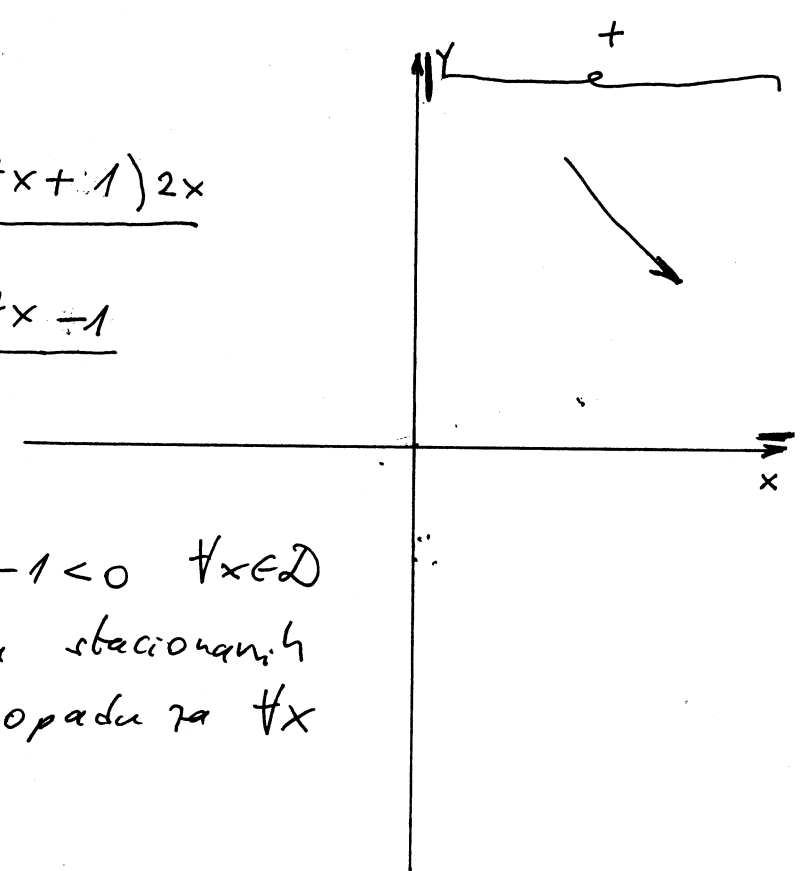 +
Y
x + 1) 2x
x - 1
x
- 1 < 0 ∀x∈D
stacionarnih
opadu za ∀x